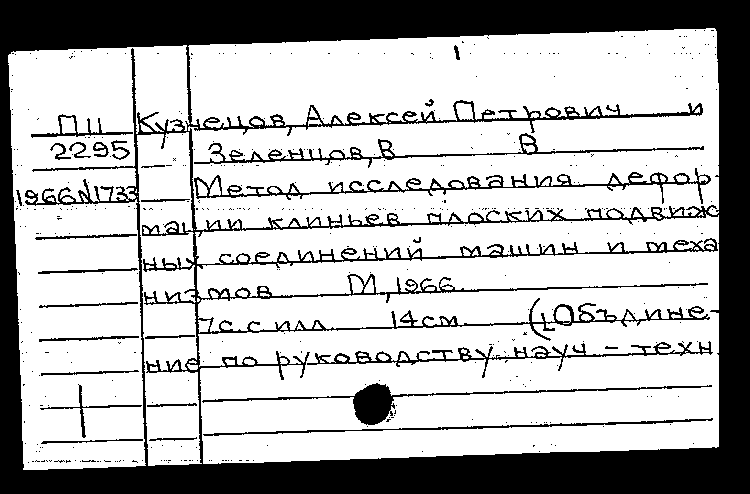 1
ПII Кузнецов, Алексей Петрович и
2295 Зеленцов, В В
1966N1733 Метод исследования дефор-
мации клиньев плоских подвиж
ных соединений машин и меха
низмов М, 1966
7с. с илл 14см (1Объдине-
ние по руководству науч - техн